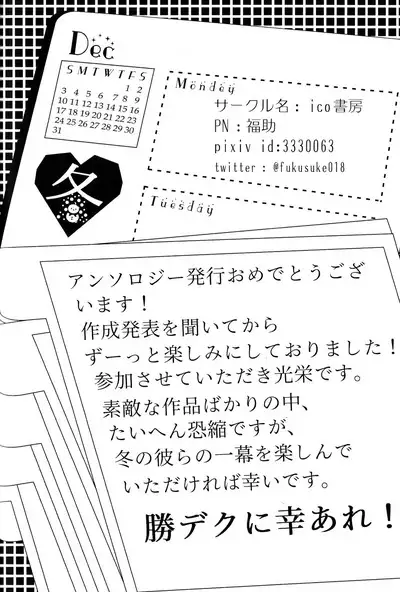 Dec
S M T W T F S
1 2
3 4 5 6 7 8 9
10 11 12 13 14 15 16
17 18 19 20 21 22 23
24 25 26 27 28 29 30
31
冬
Monday
サークル名：ico書房
PN：福助
pixiv id:3330063
twitter：@fukusuke018
Tuesday
アンソロジー発行おめでとうござ
います！
作成発表を聞いてから
ずーっと楽しみにしておりました！
参加させていただき光栄です。
素敵な作品ばかりの中、
たいへん恐縮ですが、
冬の彼らの一幕を楽しんで
いただければ幸いです。
勝デクに幸あれ！